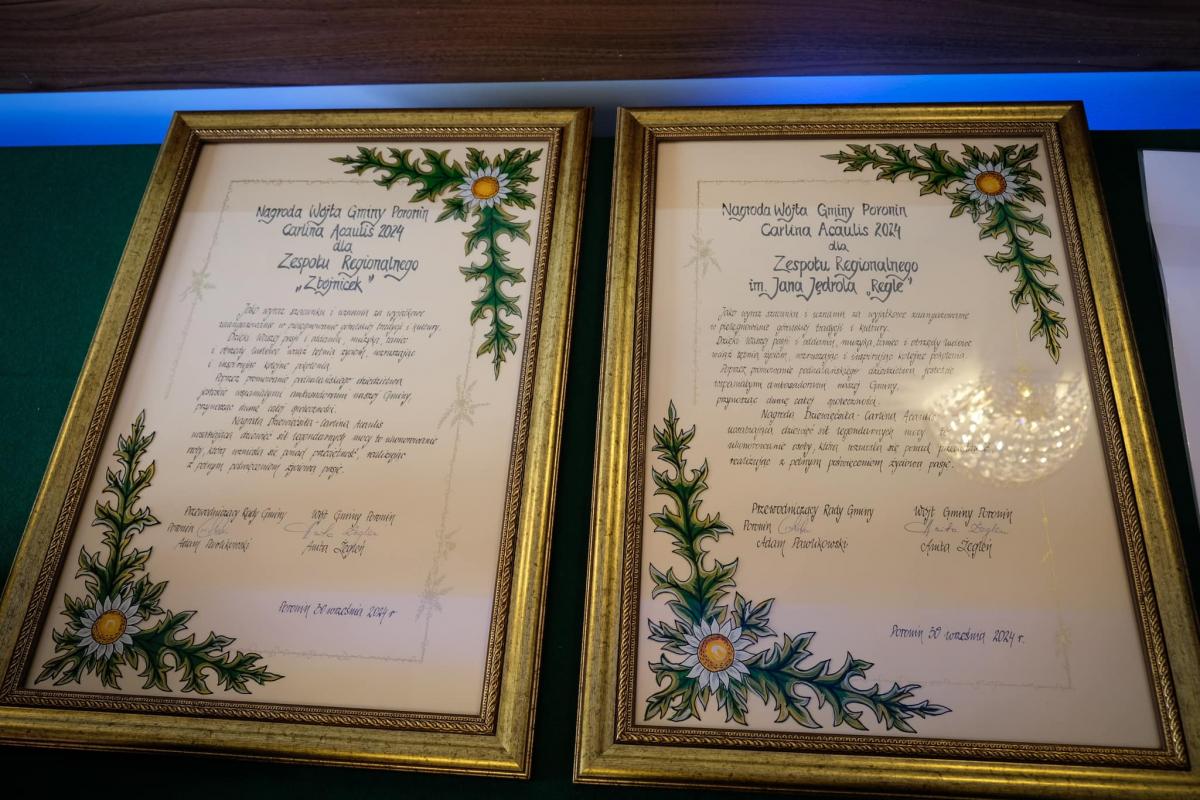 Nagroda Wójta Gminy Poronin
Carlina Acaulis 2024
dla
Zespołu Regionalnego
„Zbójnicek"
Jako wyraz szacunku i uznania za wyjątkowe
zaangażowanie w pielęgnowanie góralskiej tradycji i kultury.
Dzięki Waszej pasji i oddaniu, muzyka, taniec
i obrzędy ludowe wciąż tętnią życiem, wzruszając
i inspirując kolejne pokolenia.
Poprzez promowanie podhalańskiego dziedzictwa
jesteście wspaniałymi ambasadorami naszej Gminy,
przynosząc dumę całej społeczności.
Nagroda Dziewięćsiła - Carlina Acaulis
uosabiająca dziewięć sił legendarnych mocy to uhonorowanie
osoby, która wzniosła się ponad przeciętność, realizując
z pełnym poświęceniem życiową pasję.
Przewodniczący Rady Gminy Wójt Gminy Poronin
Poronin
Adam Pawlikowski Anita Żegleń
Poronin 30 września 2024 r
Nagroda Wójta Gminy Poronin
Carlina Acaulis 2024
dla
Zespołu Regionalnego
im. Jana Jędrola „Regle"
Jako wyraz szacunku i uznania za wyjątkowe zaangażowanie
w pielęgnowanie góralskiej tradycji i kultury.
Dzięki Waszej pasji i oddaniu, muzyka, taniec i obrzędy ludowe
wciąż tętnią życiem, wzruszając i inspirując kolejne pokolenia.
Poprzez promowanie podhalańskiego dziedzictwa jesteście
wspaniałymi ambasadorami naszej Gminy,
przynosząc dumę całej społeczności.
Nagroda Dziewięćsiła - Carlina Acaulis
uosabiająca dziewięć sił legendarnych mocy to
uhonorowanie osoby, która wzniosła się ponad
realizując z pełnym poświęceniem życiową pasję.
Przewodniczący Rady Gminy Wójt Gminy Poronin
Poronin
Adam Pawlikowski Anita Żegleń
Poronin 30 września 2024 r.